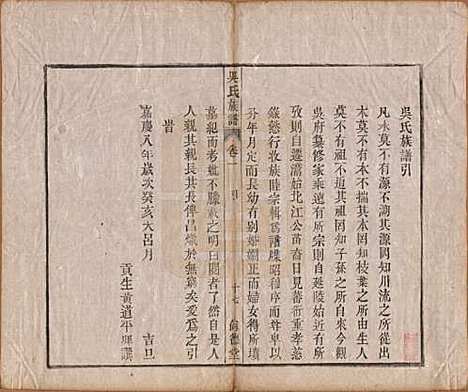 吳氏族譜引
凡水莫不有源不溯其源罔知川流之所從出
木莫不有本不進其本罔知枝葉之所由生人
莫不有祖不追其祖罔知子孫之所自來今觀
吳府纂修家乘遠有所宗則自延陵始近有
所攷則自遷濡始北江公苗裔日見蕃衍重孝慈
錄慾行敦族睦宗輯爲譜牒昭穆
分年月定而長幼有別婚姻正而婦女得所墳
墓親而考妣不朦載之明曰閱者了然自是人
人親其親長其長俾昌熾於無窮矣爰爲之引
皆
嘉慶八年歲次癸亥大呂月 吉旦
貢生黃道平理譔
吳氏族譜 卷一 引 十七 倫德堂